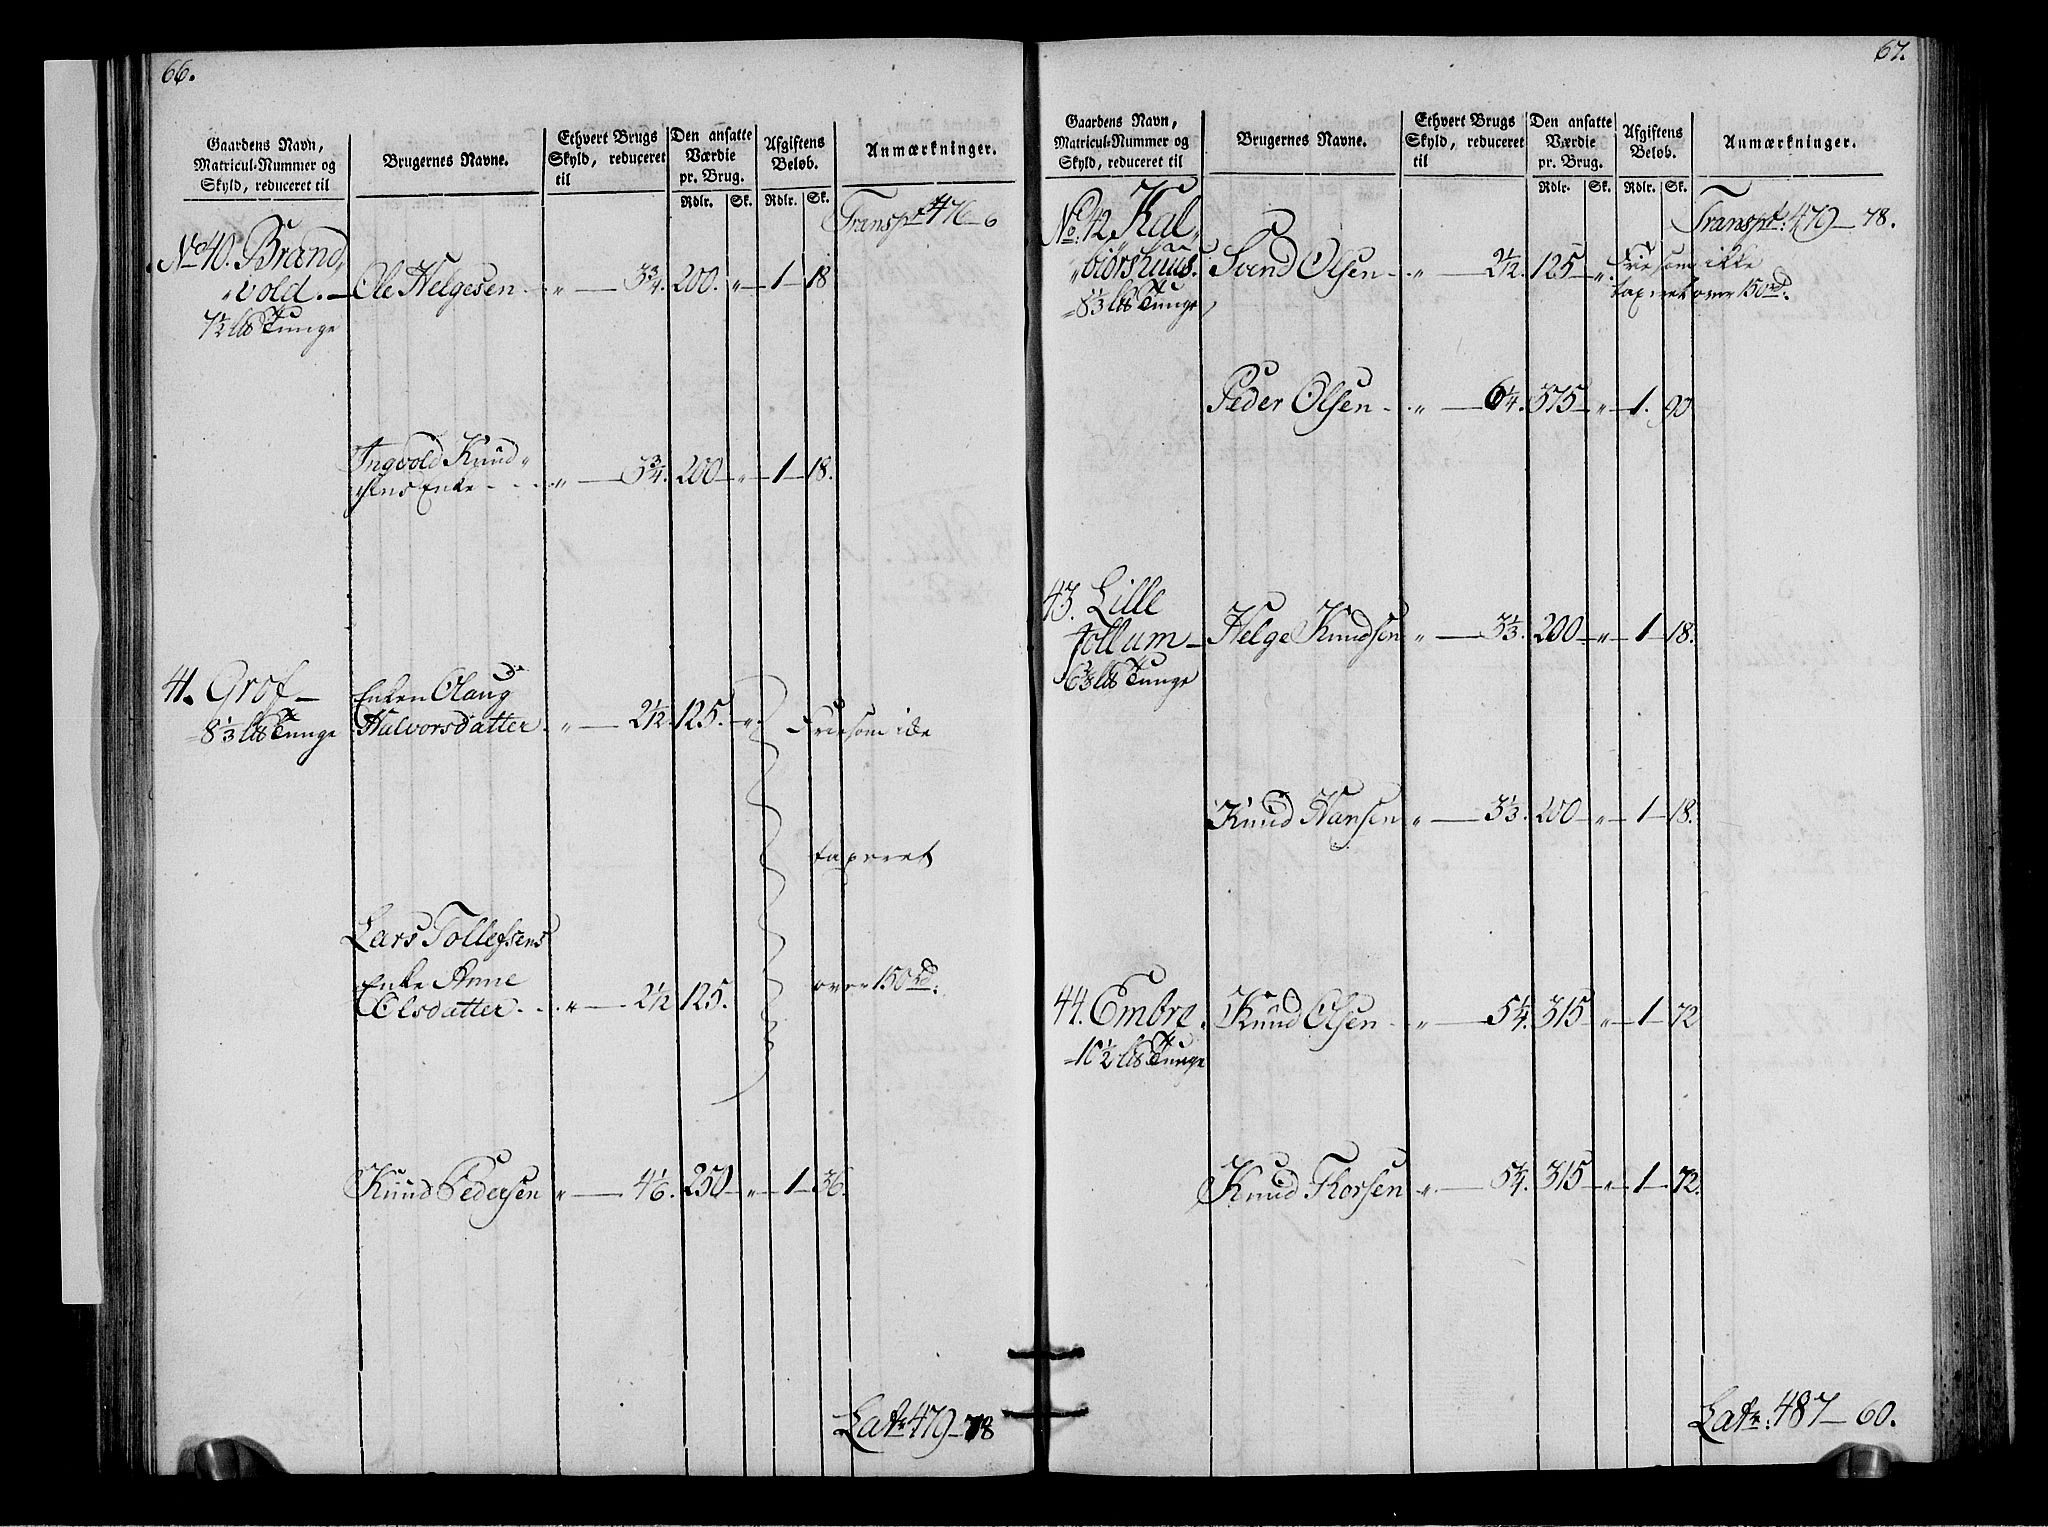 66.
Gaardens Navn, Matricul-Nummer og Skyld, reduceret til
Brugernes Navne.
Ethvert Brugs Skyld, reduceret til
Den ansatte Værdie pr. Brug.
Afgiftens Beløb.
Anmærkninger.
Rdlr. Sk. Rdlr. Sk.
Transpt 476 - 6
No 40. Brand
vold. — Ole Helgesen - „ — 3¾. 200. „ — 1 — 18
7½ Lb Tunge
Ingvold Knud„
sens Enke - - - „ — 3¾. 200 — „ — 1 — 18.
41. Grof — Enken Olaug
8⅓ Lb Tunge Halvorsdatter. „ — 2½. 125. — „ Frie som ikke
taxeret
Lars Tollefsens
Enke Anne
Olsdatter - - „ — 2½ 125. over 150 rd.
Knud Pedersen „ — 4⅙. 250 — „ — 1 — 36.
Latr 479 — 78
67.
Gaardens Navn, Matricul-Nummer og Skyld, reduceret til
Brugernes Navne.
Ethvert Brugs Skyld, reduceret til
Den ansatte Værdie pr. Brug.
Afgiftens Beløb.
Anmærkninger.
Rdlr. Sk. Rdlr. Sk.
Transpt: 479 — 78.
No. 42, Kal„
„biørshuus. Svend Olsen - „ — 2½. 125 — „ Frie som ikke
8⅓ Lb Tunge taxeret over 150 rd.
Peder Olsen - „ — 6¼. 375 — „ — 1. 90
43. Lille
Tollum — Helge Knudsen „ — 3⅓. 200 — „ — 1 — 18.
6⅔ Lb Tunge
Knud Hansen „ — 3⅓. 200 — „ — 1 — 18.
44. Embre. Knud Olsen - „ — 5¼. 315 — „ — 1 — 72
10½ Lb Tunge
Knud Thorsen „ — 5¼. 315 — „ — 1 — 72.
Latr: 487 — 60.